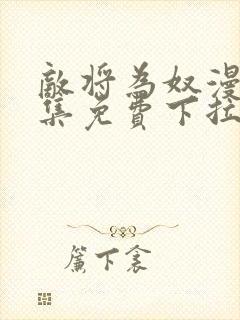 敵將為奴漫
集免費下拉
簾下衾